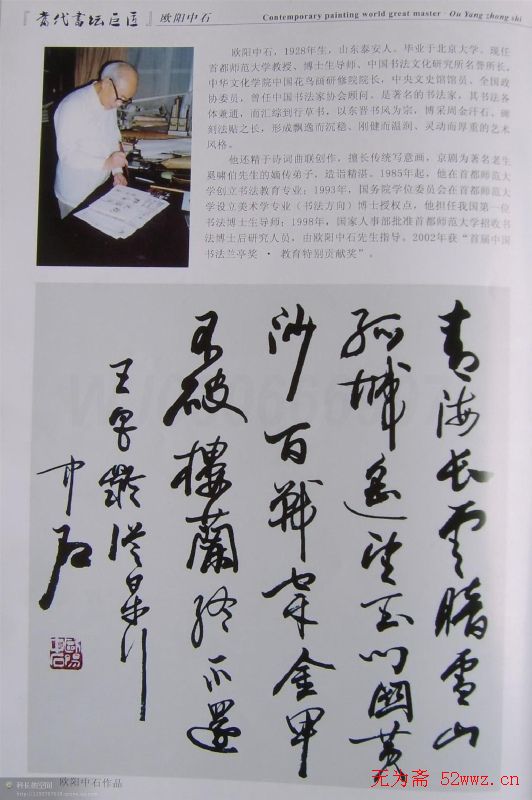 『当代书坛巨匠』欧阳中石 Contemporary painting world great master · Ou Yang zhong shi
欧阳中石，1928年生，山东泰安人。毕业于北京大学。现任
首都师范大学教授、博士生导师、中国书法文化研究所名誉所长，
中华文化学院中国花鸟画研修院院长，中央文史馆馆员、全国政
协委员，曾任中国书法家协会顾问。是著名的书法家，其书法各
体兼通，而汇综到行草书，以东晋书风为宗，博采周金汗石、碑
刻法贴之长，形成飘逸而沉稳、刚健而温润、灵动而厚重的艺术
风格。
他还精于诗词曲联创作，擅长传统写意画，京剧为著名老生
奚啸伯先生的嫡传弟子，造诣精湛。1985年起，他在首都师范大
学创立书法教育专业；1993年，国务院学位委员会在首都师范大
学设立美术学专业（书法方向）博士授权点，他担任我国第一位
书法博士生导师；1998年，国家人事部批准首都师范大学招收书
法博士后研究人员，由欧阳中石先生指导。2002年获“首届中国
书法兰亭奖 · 教育特别贡献奖”。
青海长云暗雪山
孤城遥望玉门关黄
沙百战穿金甲
不破楼兰终不还
王昌龄从军行
中石
欧阳中石作品
无为斋 52wwz.cn